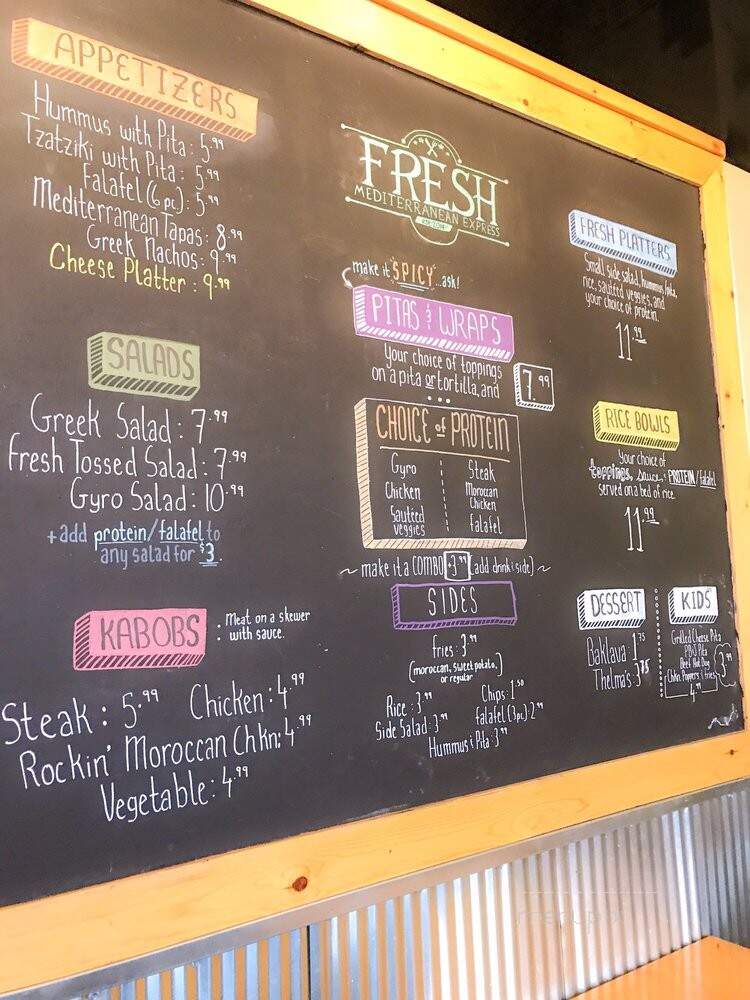 APPETIZERS
Hummus with Pita: 5.99
Tzatziki with Pita: 5.99
Falafel (6 pc): 5.99
Mediterranean Tapas: 8.99
Greek Nachos: 9.99
Cheese Platter: 9.99
SALADS
Greek Salad: 7.99
Fresh Tossed Salad: 7.99
Gyro Salad: 10.99
+add protein/falafel to
any salad for $3
KABOBS
: Meat on a skewer
with sauce.
Steak: 5.99 Chicken: 4.99
Rockin' Moroccan Chkn: 4.99
Vegetable: 4.99
FRESH
MEDITERRANEAN EXPRESS
make it SPICY ..ask!
PITAS & WRAPS
Your choice of toppings
on a pita or tortilla, and 7.99
...
CHOICE of PROTEIN
Gyro Steak
Chicken Moroccan Chicken
Sautéed veggies falafel
~ make it a COMBO +3.99 (add drink & side) ~
SIDES
fries: 3.99
(moroccan, sweet potato,
or regular
Rice: 3.99 Chips: 1.50
Side Salad: 3.99 falafel (3pc): 2.99
Hummus & Pita: 3.99
FRESH PLATTERS
Small side salad, hummus, pita,
rice, sautéed veggies, and
your choice of protein.
11.99
RICE BOWLS
Your choice of
toppings, sauce, & PROTEIN/falafel
served on a bed of rice.
11.99
DESSERT
Baklava: 1.75
Thelma's: 3.75
KIDS
Grilled Cheese Pita
PB&J Pita
Beef Hot Dog
3.99
Chkn Poppers & fries
4.99